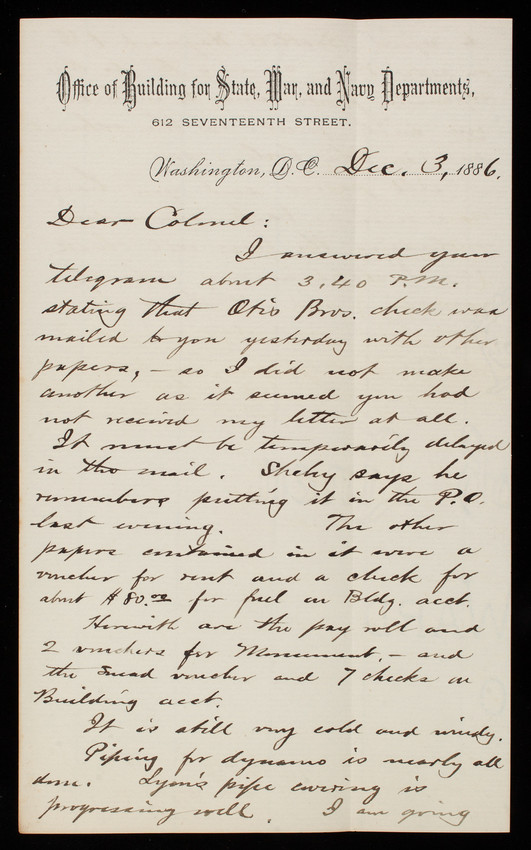 Office of Building for State, War, and Navy Departments,
612 SEVENTEENTH STREET.
Washington, D. C. Dec. 3, 1886.
Dear Colonel:
I answered your
telegram about 3.40 P.M.
stating that Otis Bros. check was
mailed to you yesterday with other
papers, – so I did not make
another as it seemed you had
not received my letter at all.
It must be temporarily delayed
in the mail. Sheby says he
remembers putting it in the P.O.
last evening. The other
papers contained in it were a
voucher for rent and a check for
about $80.00 for fuel on Bldg. acct.
Herewith are the pay roll and
2 vouchers for Monument, – and
the voucher and 7 checks on
Building acct.
It is still very cold and windy.
Piping for dynamo is nearly all
done. Lyon's pipe covering is
progressing well. I am going